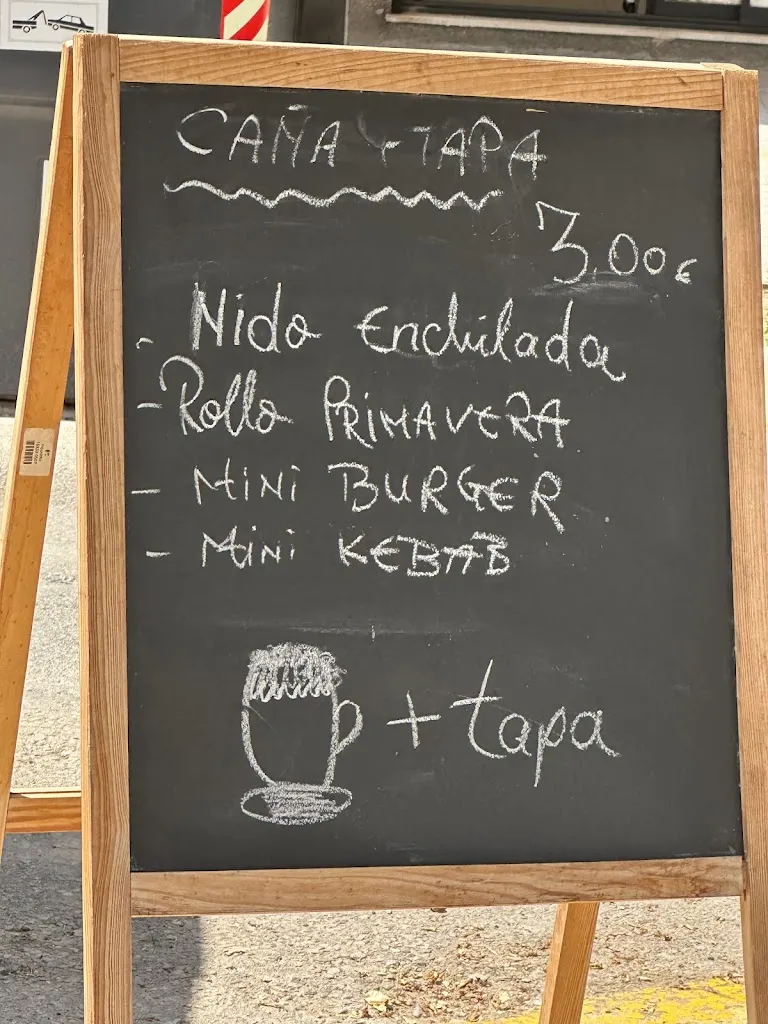 CAÑA Y TAPA
3,00€
- Nido Enchilada
- Rollo PRIMAVERA
- MINI BURGER
- MINI KEBAB
+ tapa